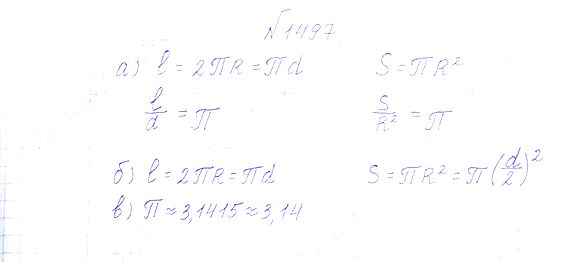 №1497
а) l = 2πR = πd S = πR²
l/d = π S/R² = π
б) l = 2πR = πd S = πR² = π(d/2)²
в) π ≈ 3,1415 ≈ 3,14